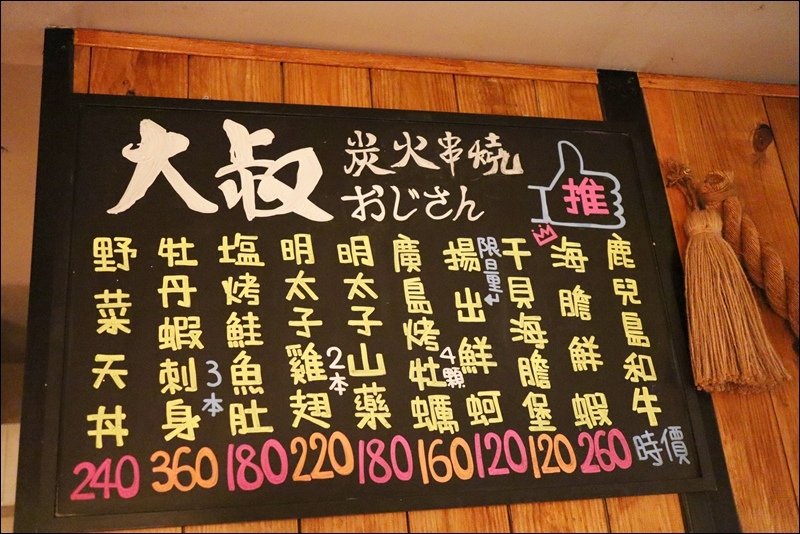 大叔 炭火串燒
おじさん
推
鹿兒島和牛 時價
海膽鮮蝦 260
干貝海膽堡 120
限量
揚出鮮蚵 120
廣島烤牡蠣 4顆 160
明太子山藥 180
明太子雞翅 2本 220
塩烤鮭魚肚 180
牡丹蝦刺身 3本 360
野菜天丼 240